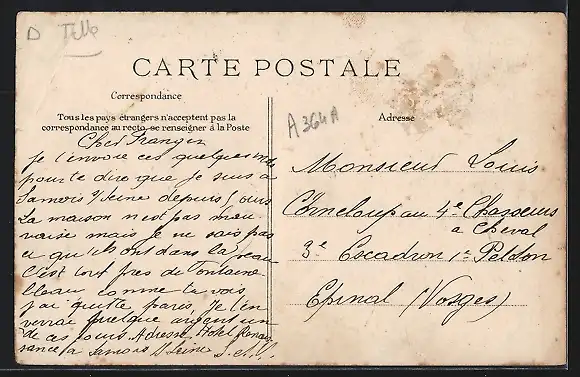 D Telle
CARTE POSTALE
Correspondance
Tous les pays étrangers n'acceptent pas la
correspondance au recto, se renseigner à la Poste
Cher
Je t'envoie ces quelques mots
pour te dire que je suis à
Samois s/Seine depuis jours
La maison n'est pas mau
vaise mais je ne sais pas
ce qu'ils ont dans la peau
C'est tout près de Fontaine
bleau comme tu vois
j'ai quitté Paris Je t'en
verrai quelque argent un
de ces jours Adresse Hotel Renais
sance à Samois S Seine
A364A
Adresse
Monsieur Louis
au 4e Chasseurs
à Cheval
3e Escadron 1r Peloton
Epinal (Vosges)